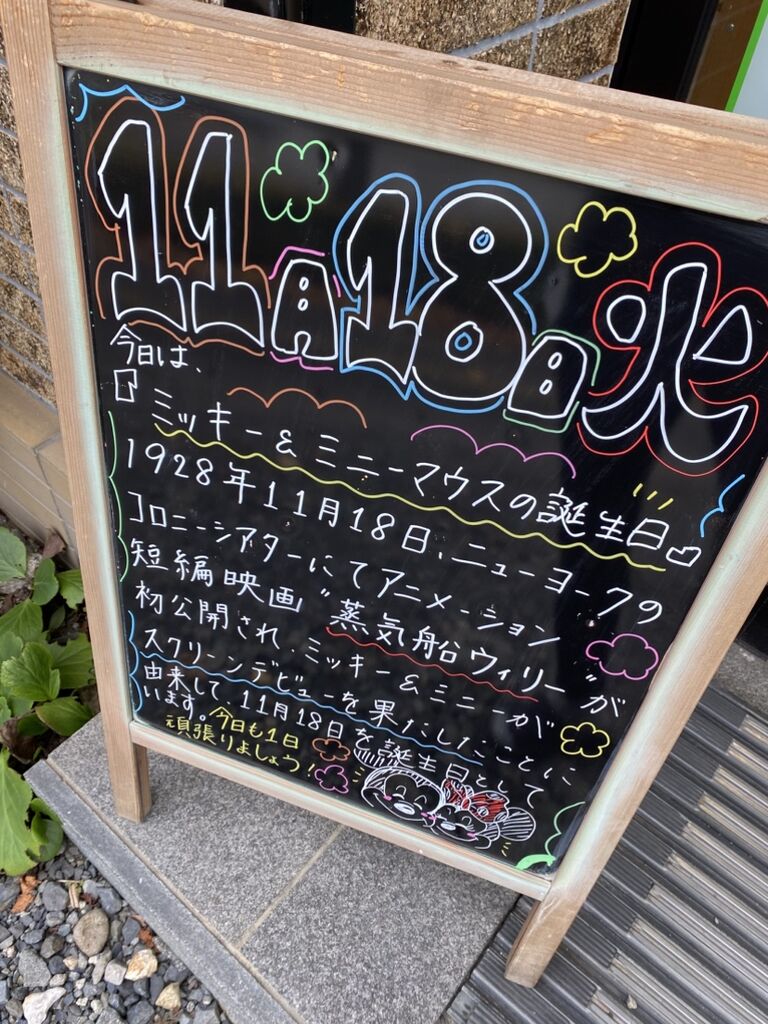 11月18日火
今日は、
『ミッキー&ミニーマウスの誕生日』
1928年11月18日、ニューヨークの
コロニーシアターにてアニメーション
短編映画"蒸気船ウィリー"が
初公開され、ミッキー&ミニーが
スクリーンデビューを果たしたことに
由来して、11月18日を誕生日として
います。
今日も1日
頑張りましょう!